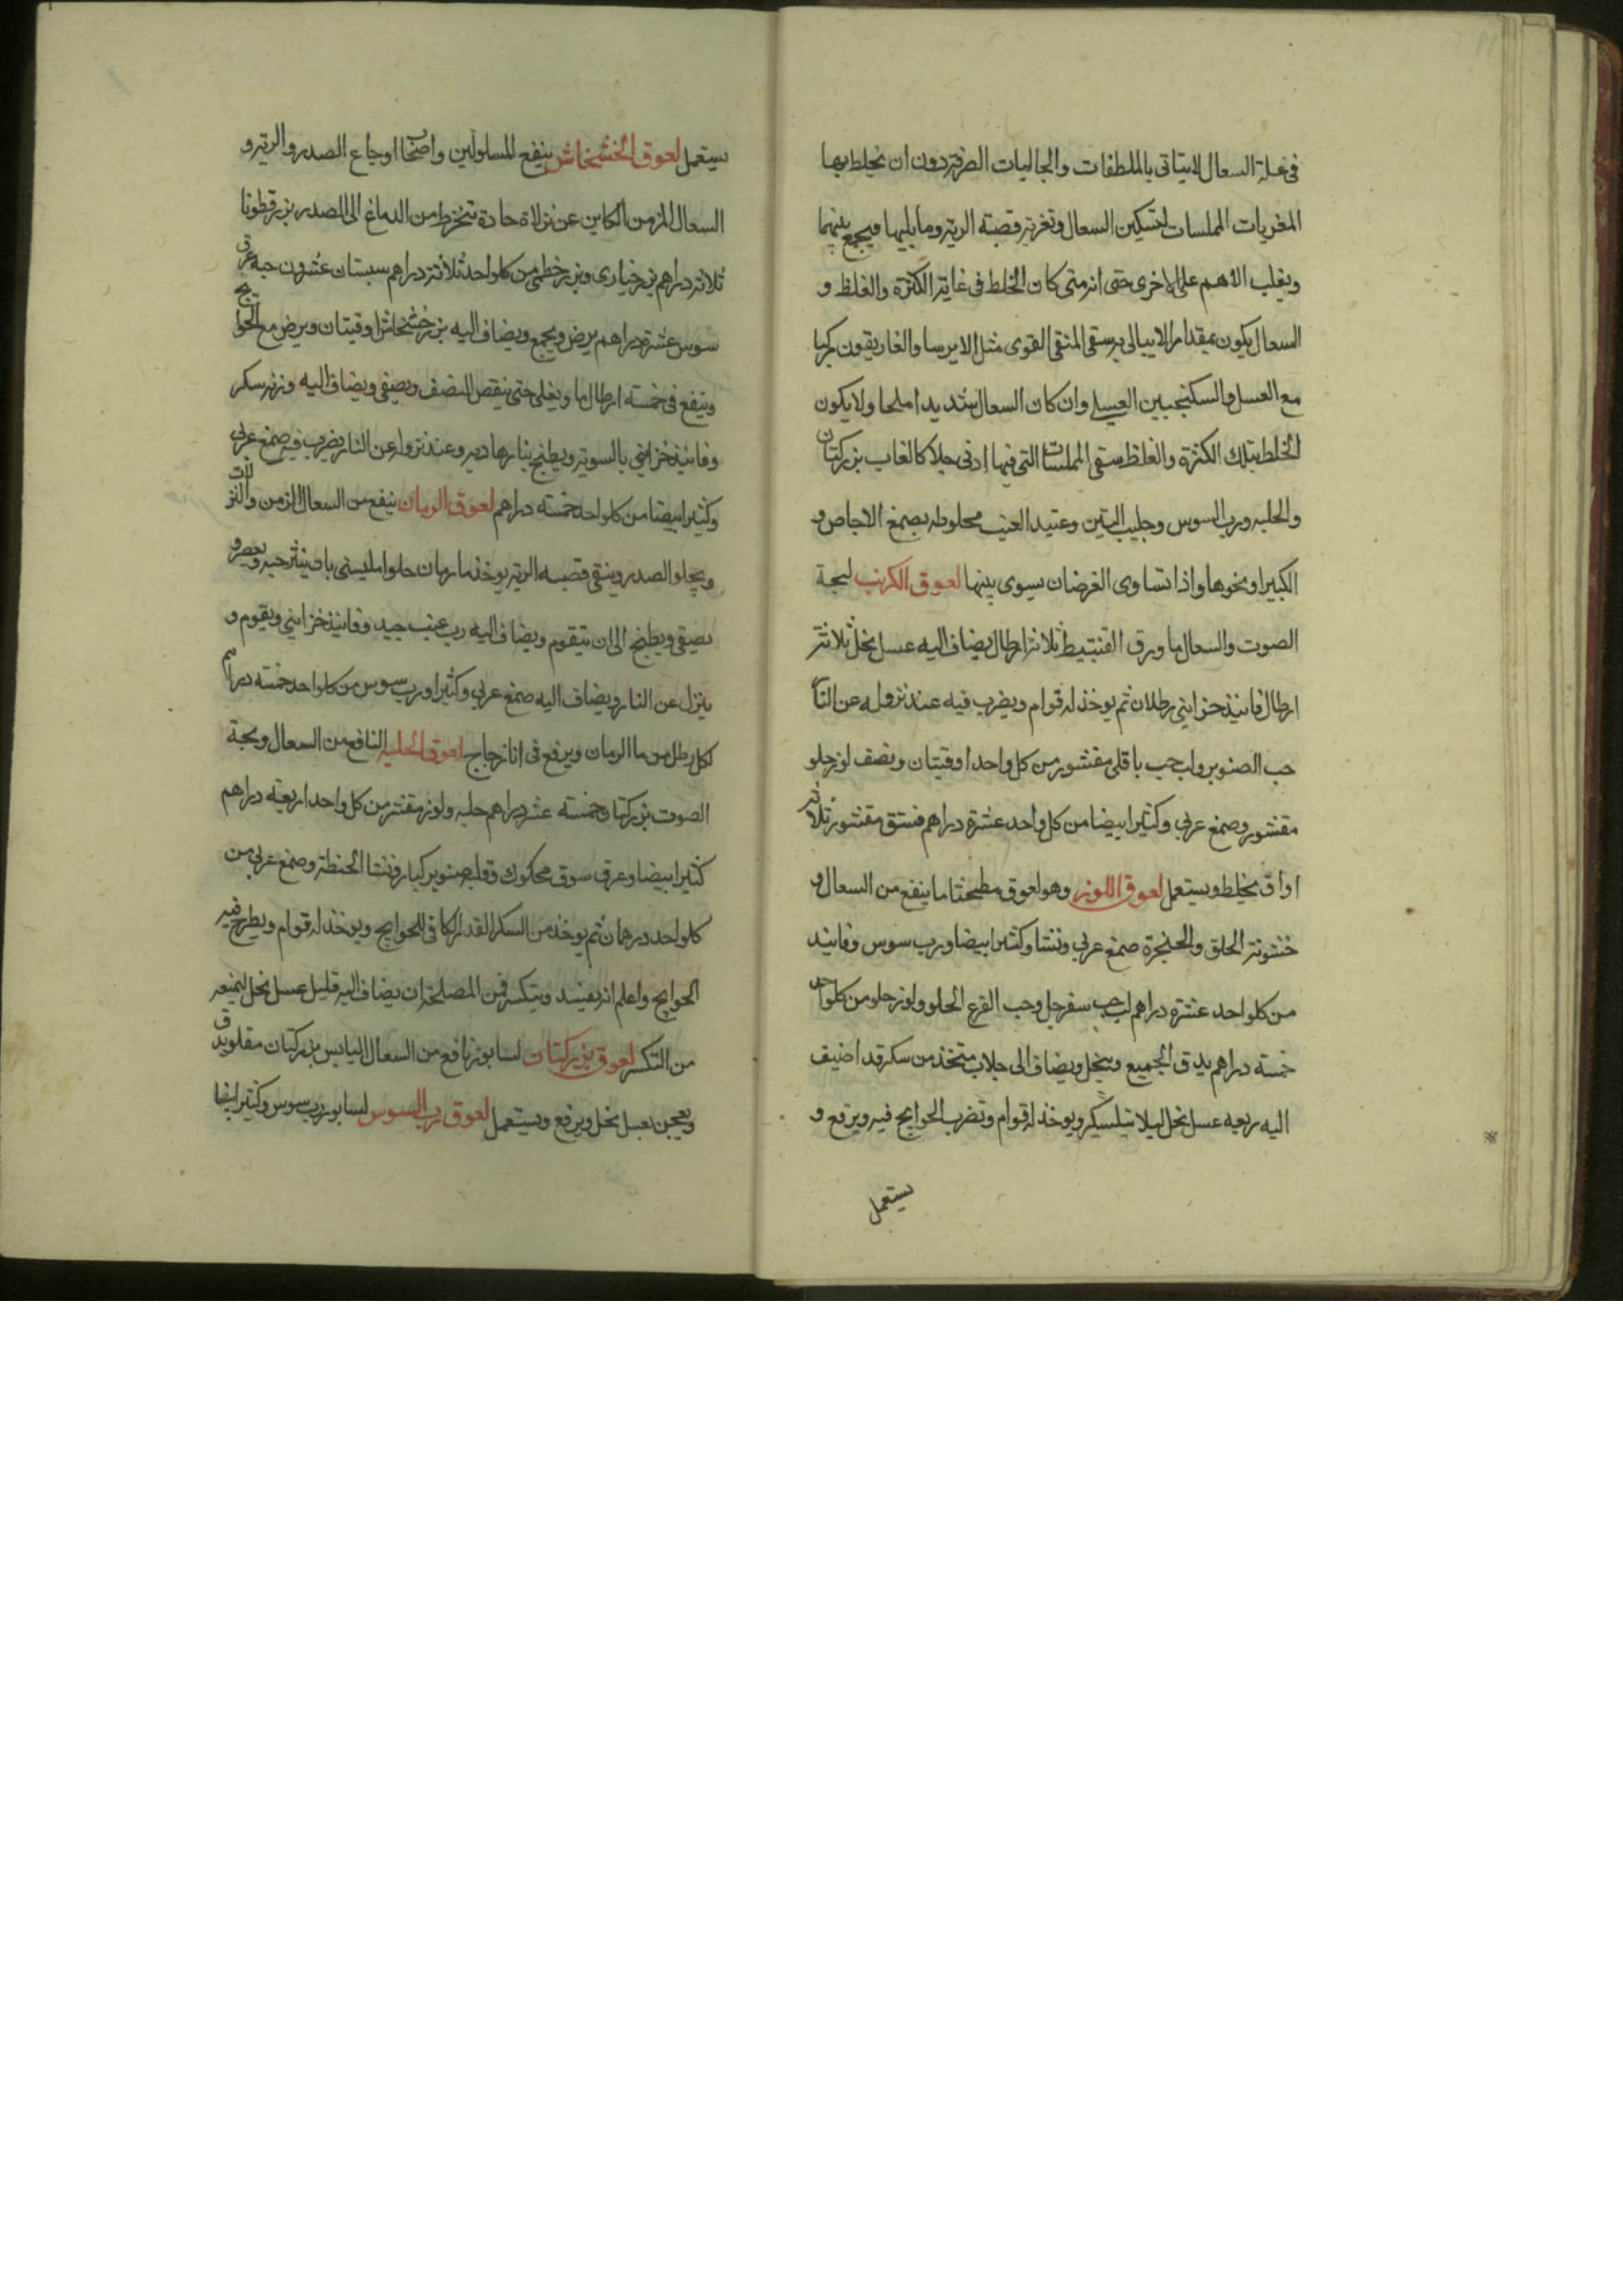 في علة السعال لا يتاتى بالملطفات والجاليات الصرفة دون ان يخلط بها
المغريات المملسات لتسكين السعال وتغرية قصبة الرية وما يليها فيجمع بينهما
ويغلب الاهم على الاخرى حتى انه متى كان الخلط في غاية الكثرة والغلظ و
السعال يكون بمقدار لا يبالى به سقي المنقي القوي مثل الايرسا والغاريقون مركبا
مع العسل والسكنجبين العسلي وان كان السعال شديدا ملحا ولا يكون
الخلط بتلك الكثرة والغلظ سقي المملسات التي فيها ادنى جلا كالعاب بزر كتان
والحلبه ورب السوس وحليب التين وعتيد العنب مخلوطه بصمغ الاجاص و
الكثيرا ونحوها واذا تساوى الغرضان سوى بينها لعوق الكرنب لبحة
الصوت والسعال ما ورق القنبيط ثلاثة ارطال يضاف اليه عسل نحل ثلاثة
ارطال فانيذ خزايني رطلان ثم يوخذ له قوام ويضرب فيه عند نزوله عن النار
حب الصنوبر ولب حب باقلي مقشور من كل واحد اوقيتان ونصف لوز حلو
مقشور وصمغ عربي وكثيرا بيضا من كل واحد عشرة دراهم فستق مقشور ثلاثة
اواق يخلط ويستعمل لعوق اللوز وهو لعوق مطبختاما ينفع من السعال و
خشونة الحلق والحنجرة صمغ عربي ونشا وكثيرا بيضا ورب سوس وفانيد
من كلواحد عشرة دراهم لب حب سفرجل وحب القرع الحلو ولوز حلو من كلواحد
خمسة دراهم يدق الجميع وينخل ويضاف الى جلاب متخذ من سكر قد اضيف
اليه ربعه عسل نحل ليلا يتسكر ويوخذ له قوام وتضرب الحوايج فيه ويرفع و
يستعمل
يستعمل لعوق الخشخاش ينفع المسلولين واصحاب اوجاع الصدر والرية و
السعال المزمن الكاين عن نزلاة حادة تنخرط من الدماغ الى الصدر بزر قطونا
ثلاثة دراهم بزر خياري وبزر خطمي من كلواحد ثلاثة دراهم سبستان عشرون حبه عرق
سوس عشرة دراهم يرض ويجمع ويضاف اليه بزر خشخاش اوقيتان ويرض مع الحوايج
وينقع في خمسة ارطال ما ويغلى حتى ينقص النصف ويصفى ويضاف اليه وزنه سكر
وفانيذ خزايني بالسوية ويطبخ بنار هادية وعند نزوله عن النار يضرب فيه صمغ عربي
وكثيرا بيضا من كلواحد خمسة دراهم لعوق الرمان ينفع من السعال المزمن والنزلات
ويجلو الصدر وينقي قصبه الرية يوخذ ما رمان حلو امليسي بان ينثر حبه ويعصر و
يصفى ويطبخ الى ان يتقوم ويضاف اليه رب عنب جيد وفانيذ خزايني ويقوم و
ينزل عن النار ويضاف اليه صمغ عربي وكثيرا ورب سوس من كلواحد خمسة دراهم
لكل رطل من ما الرمان ويرفع في انا زجاج لعوق الحلبه النافع من السعال وبحة
الصوت بزر كتان خمسة عشر دراهم حلبه ولوز مقشر من كل واحد اربعة دراهم
كثيرا بيضا وعرق سوق محكوك وقلب صنوبر كبار ونشا الحنطة وصمغ عربي من
كلواحد درهمان ثم يوخذ من السكر القدر الكافي للحوايج ويوخذ له قوام ويطرح فيه
الحوايج واعلم انه يفسد ويتكسر فمن المصلحة ان يضاف اليه قليل عسل نحل ليمنعه
من التكسر لعوق بزر كتان لسابور نافع من السعال اليابس بزر كتان مقلو يدق
ويعجن بعسل نحل ويرفع ويستعمل لعوق رب السوس لسابور رب سوس وكثيرا بيضا